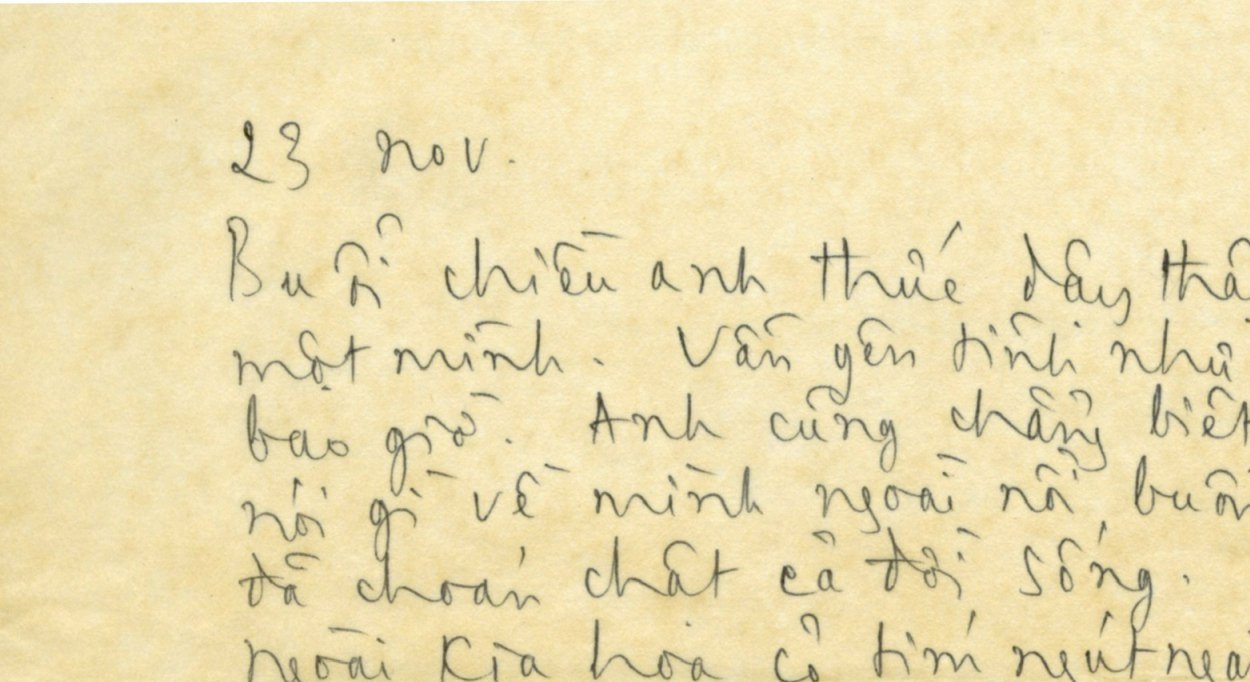 23 nov.
Buổi chiều anh thức dậy thấ
một mình. Vẫn yên tĩnh như
bao giờ. Anh cũng chẳng biết
nói gì về mình ngoài nỗi buồn
đã choán chật cả đời sống.
ngoài kia hoa cỏ tím ngút ngà